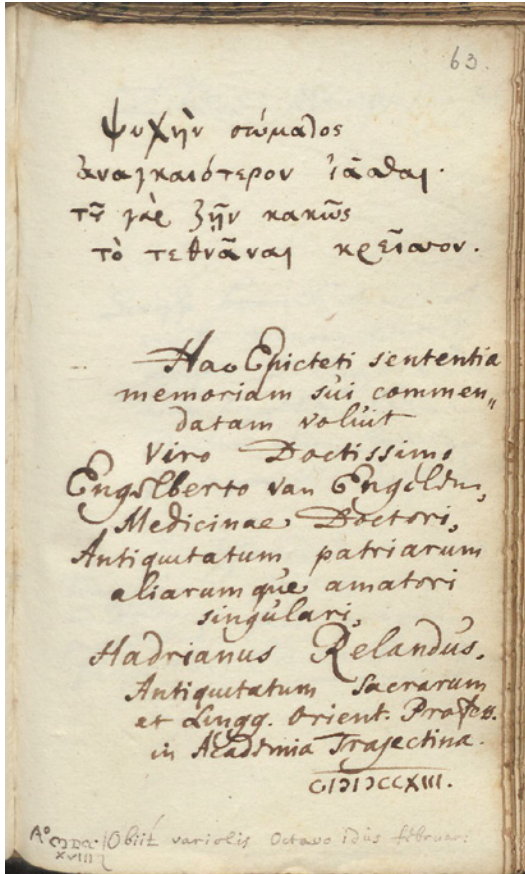 63.
ψυχὴν σώματος
ἀναγκαιότερον ἰᾶσθαι.
τοῦ γὰρ ζῆν κακῶς
τὸ τεθνᾶναι κρεῖσσον.
Hac Epicteti sententia
memoriam sui commen„
datam voluit
Viro Doctissimo
Engelberto van Engelen,
Medicinae Doctori,
Antiquitatum patriarum
aliarumque amatori
singulari,
Hadrianus Relandus,
Antiquitatum Sacrarum
et Lingg. Orient. Profess.
in Academia Trajectina.
CIƆIƆCCXIII.
Aº
XVIII
Obiit variolis Octavo idus februar: